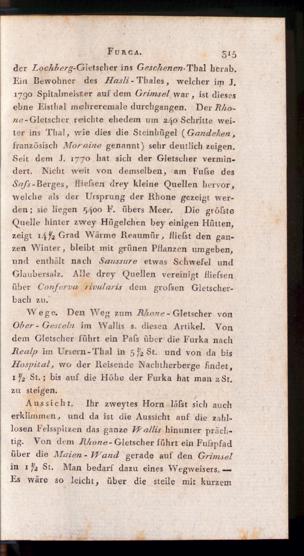 FURCA. 515
der Lochberg-Gletscher ins Geschenen-Thal herab.
Ein Bewohner des Hasli-Thales, welcher im J.
1790 Spitalmeister auf dem Grimsel war, ist dieses
ebne Eisthal mehreremale durchgangen. Der Rho-
ne-Gletscher reichte ehedem um 240 Schritte wei-
ter ins Thal, wie dies die Steinhügel (Gandeken,
französisch Moraine genannt) sehr deutlich zeigen.
Seit dem J. 1770 hat sich der Gletscher vermin-
dert. Nicht weit von demselben, am Fuſse des
Saſs-Berges, flieſsen drey kleine Quellen hervor,
welche als der Ursprung der Rhone gezeigt wer-
den; sie liegen 5400 F. übers Meer. Die gröſste
Quelle hinter zwey Hügelchen bey einigen Hütten,
zeigt 14½ Grad Wärme Reaumür, flieſst den gan-
zen Winter, bleibt mit grünen Pflanzen umgeben,
und enthält nach Saussure etwas Schwefel und
Glaubersalz. Alle drey Quellen vereinigt flieſsen
über Conferva rivularis dem groſsen Gletscher-
bach zu.
Wege. Den Weg zum Rhone-Gletscher von
Ober-Gesteln im Wallis s. diesen Artikel. Von
dem Gletscher führt ein Paſs über die Furka nach
Realp im Ursern-Thal in 5½ St. und von da bis
Hospital, wo der Reisende Nachtherberge findet,
1½ St.; bis auf die Höhe der Furka hat man 2 St.
zu steigen.
Aussicht. Ihr zweytes Horn läſst sich auch
erklimmen, und da ist die Aussicht auf die zahl-
losen Felsspitzen das ganze Wallis hinunter präch-
tig. Von dem Rhone-Gletscher führt ein Fuſspfad
über die Maien-Wand gerade auf den Grimsel
in 1½ St. Man bedarf dazu eines Wegweisers. —
Es wäre so leicht, über die steile mit kurzem